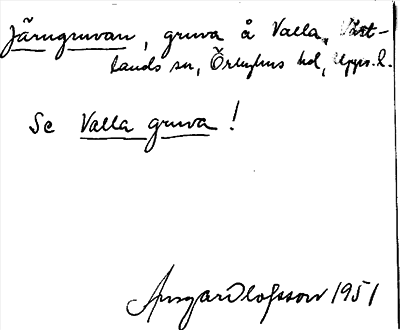 Järngruvan, gruva å Valla, Väst-
lands sn, Örbyhus hd, Upps. l.
Se Valla gruva!
Ansgar Olofsson 1951